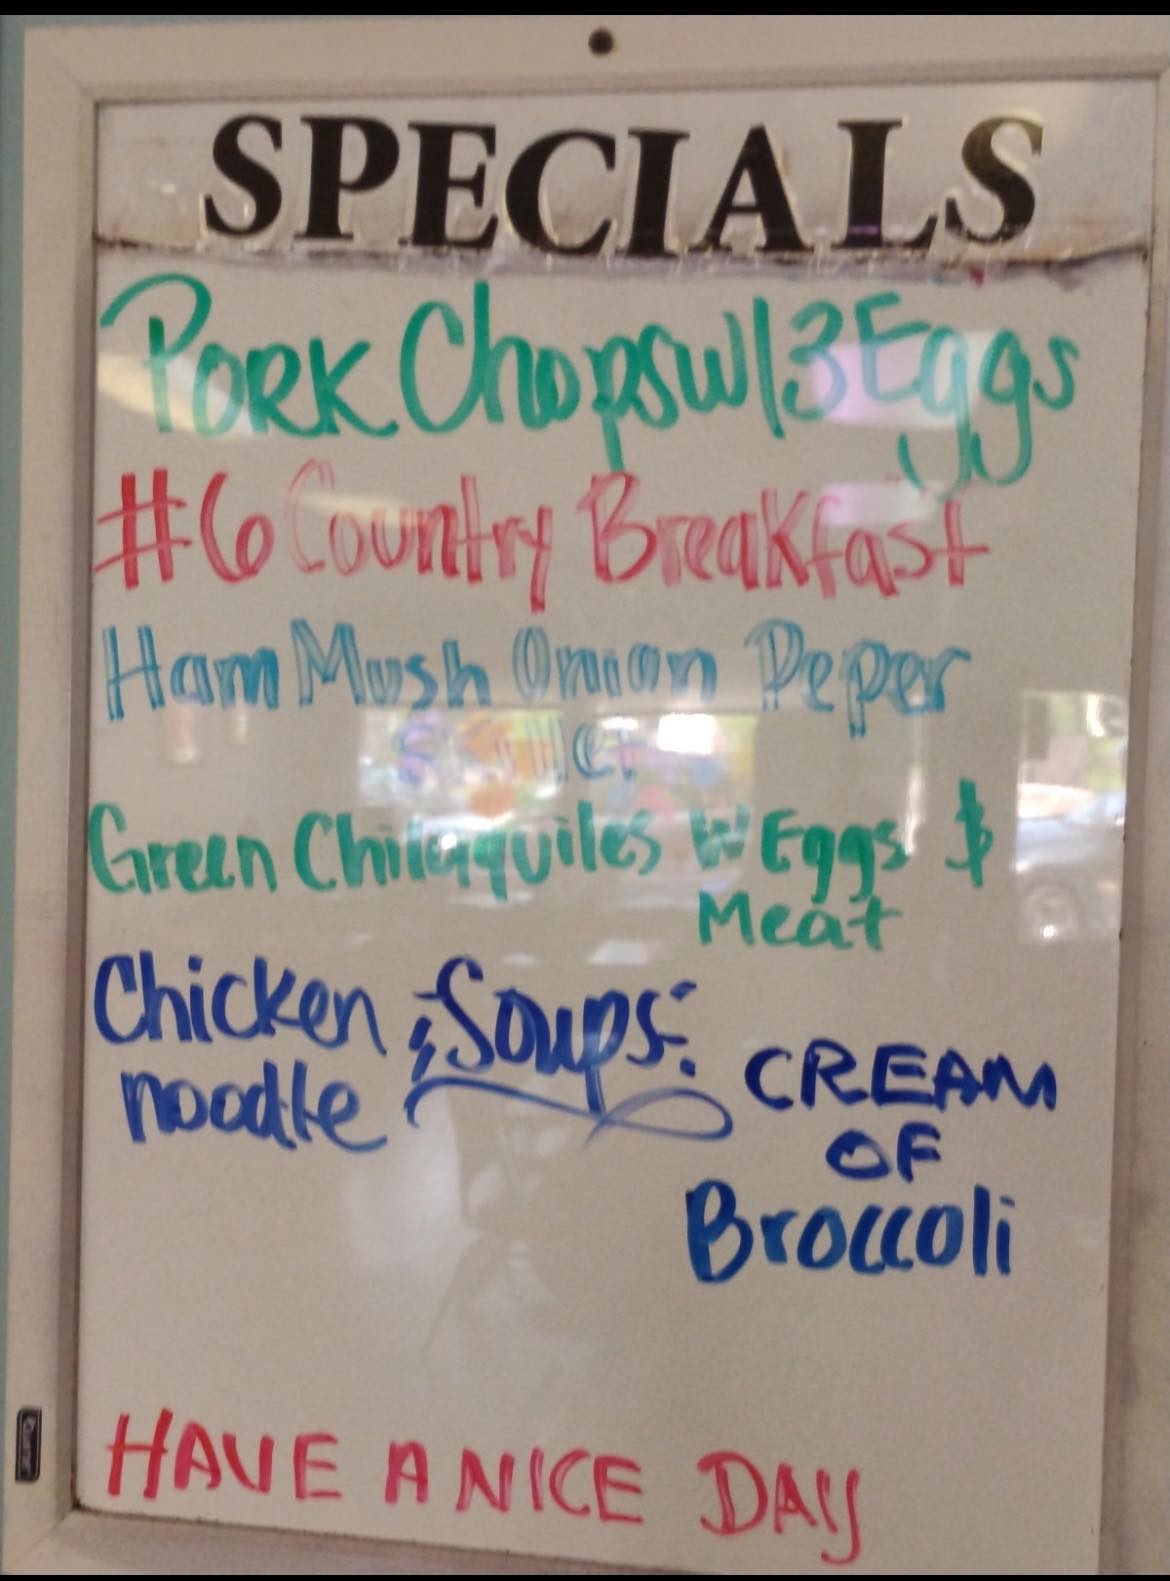 SPECIALS
Pork Chops w/ 3 Eggs
#6 Country Breakfast
Ham Mush Onion Peper
Skillet
Green Chilaquiles W Eggs $
Meat
Chicken noodle
Soups:
CREAM
OF
Broccoli
HAVE A NICE DAY